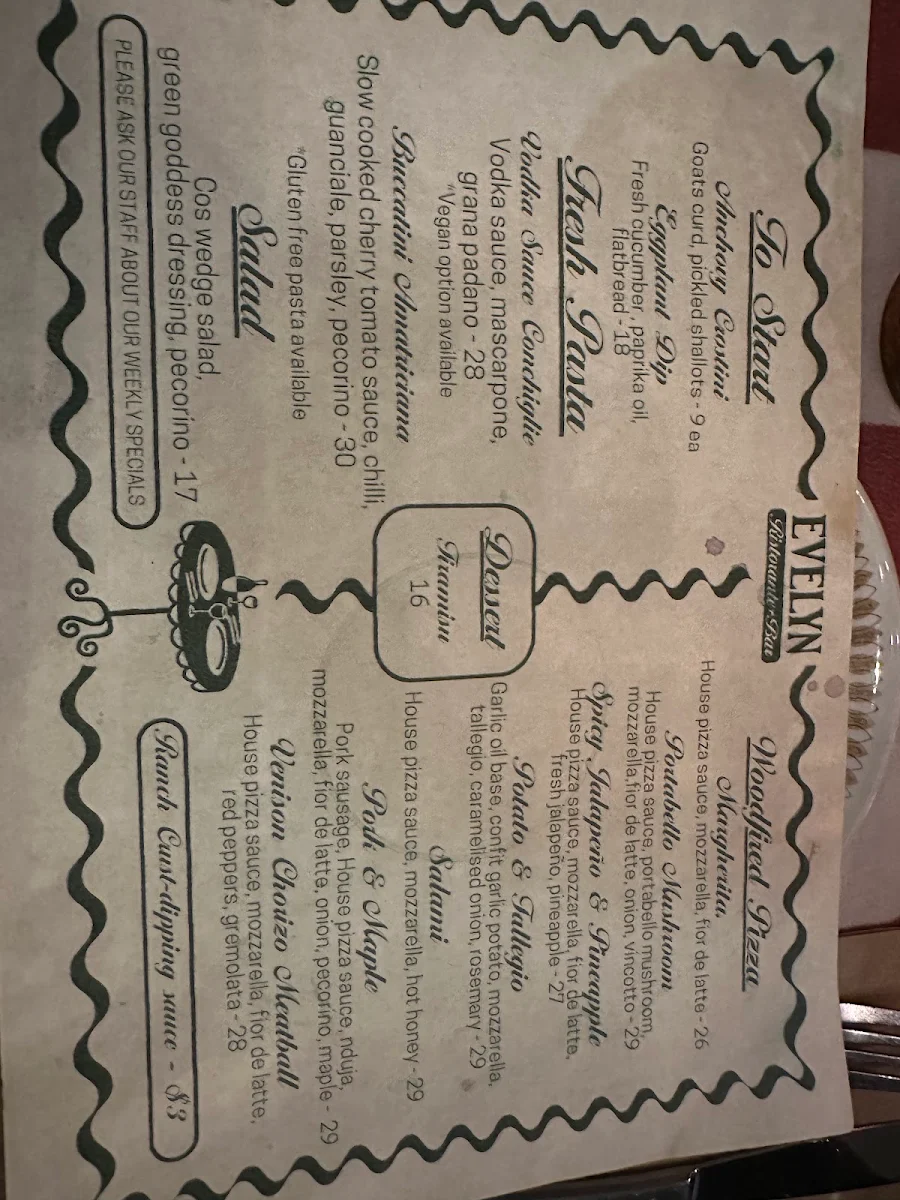 EVELYN
Ristorante & Bar
To Start
Anchovy Crostini
Goats curd, pickled shallots - 9 ea
Eggplant Dip
Fresh cucumber, paprika oil,
flatbread - 18
Fresh Pasta
Vodka Sauce Conchiglie
Vodka sauce, mascarpone,
grana padano - 28
*Vegan option available
Buccatini Amatriciana
Slow cooked cherry tomato sauce, chilli,
guanciale, parsley, pecorino - 30
*Gluten free pasta available
Salad
Cos wedge salad,
green goddess dressing, pecorino - 17
PLEASE ASK OUR STAFF ABOUT OUR WEEKLY SPECIALS
Dessert
Tiramisu
16
Woodfired Pizza
Margherita
House pizza sauce, mozzarella, fior de latte - 26
Portabello Mushroom
House pizza sauce, portabello mushroom,
mozzarella, fior de latte, onion, vincotto - 29
Spicy Jalapeño & Pineapple
House pizza sauce, mozzarella, fior de latte,
fresh jalapeño, pineapple - 27
Potato & Tallegio
Garlic oil base, confit garlic, potato, mozzarella,
tallegio, caramelised onion, rosemary - 29
Salami
House pizza sauce, mozzarella, hot honey - 29
Pork & Maple
Pork sausage, House pizza sauce, nduja,
mozzarella, fior de latte, onion, pecorino, maple - 29
Venison Chorizo Meatball
House pizza sauce, mozzarella, fior de latte,
red peppers, gremolata - 28
Ranch Crust-dipping sauce - $3